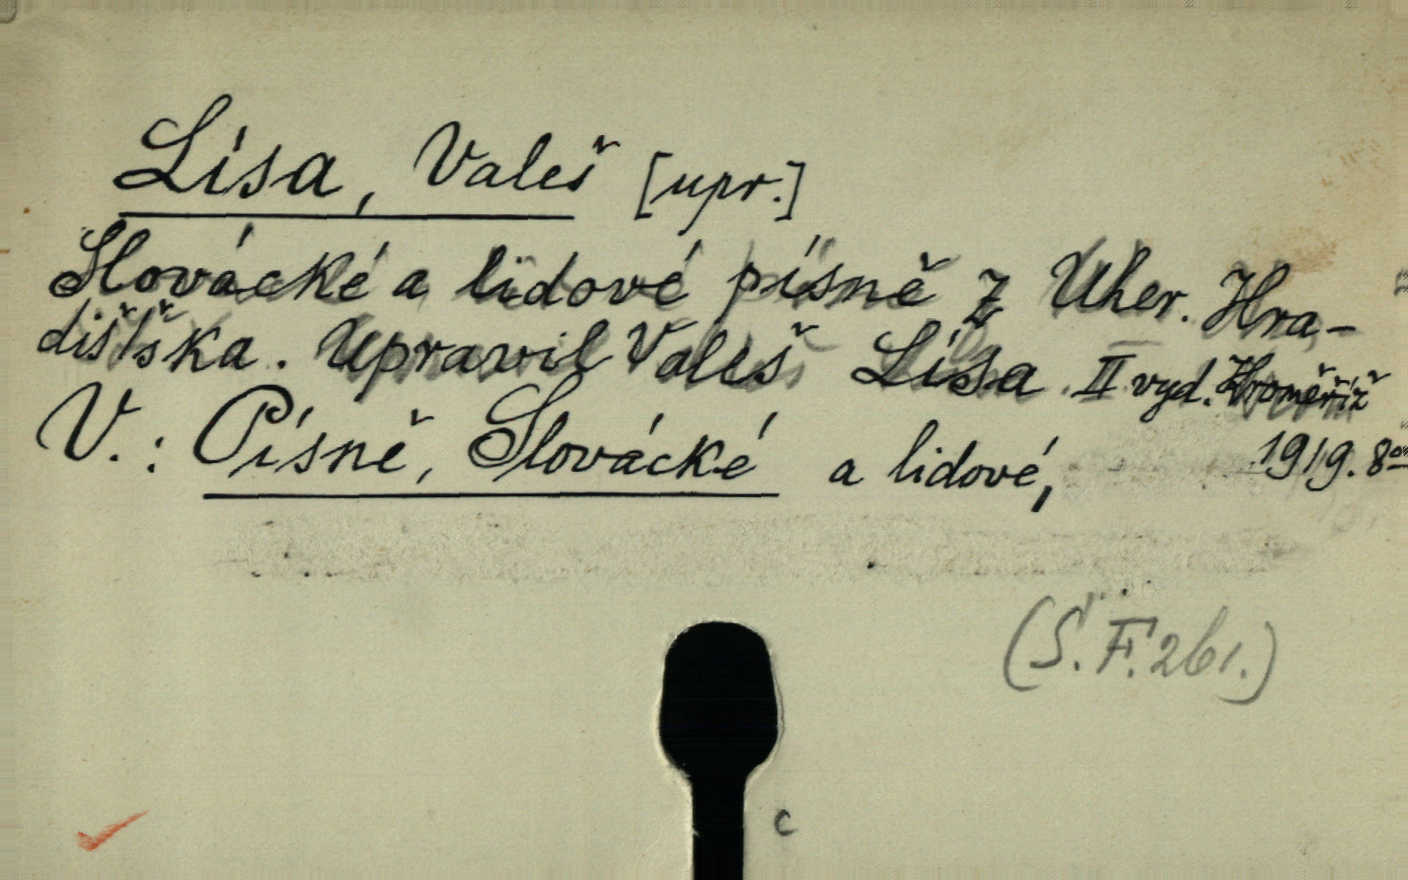 Lísa, Valeš [upr.]
Slovácké a lidové písně z Uher. Hra-
dišťska. Upravil Valeš Lísa. II vyd. Kroměříž
V.: Písně, Slovácké a lidové, 1919. 8°
(S. F. 261.)
c